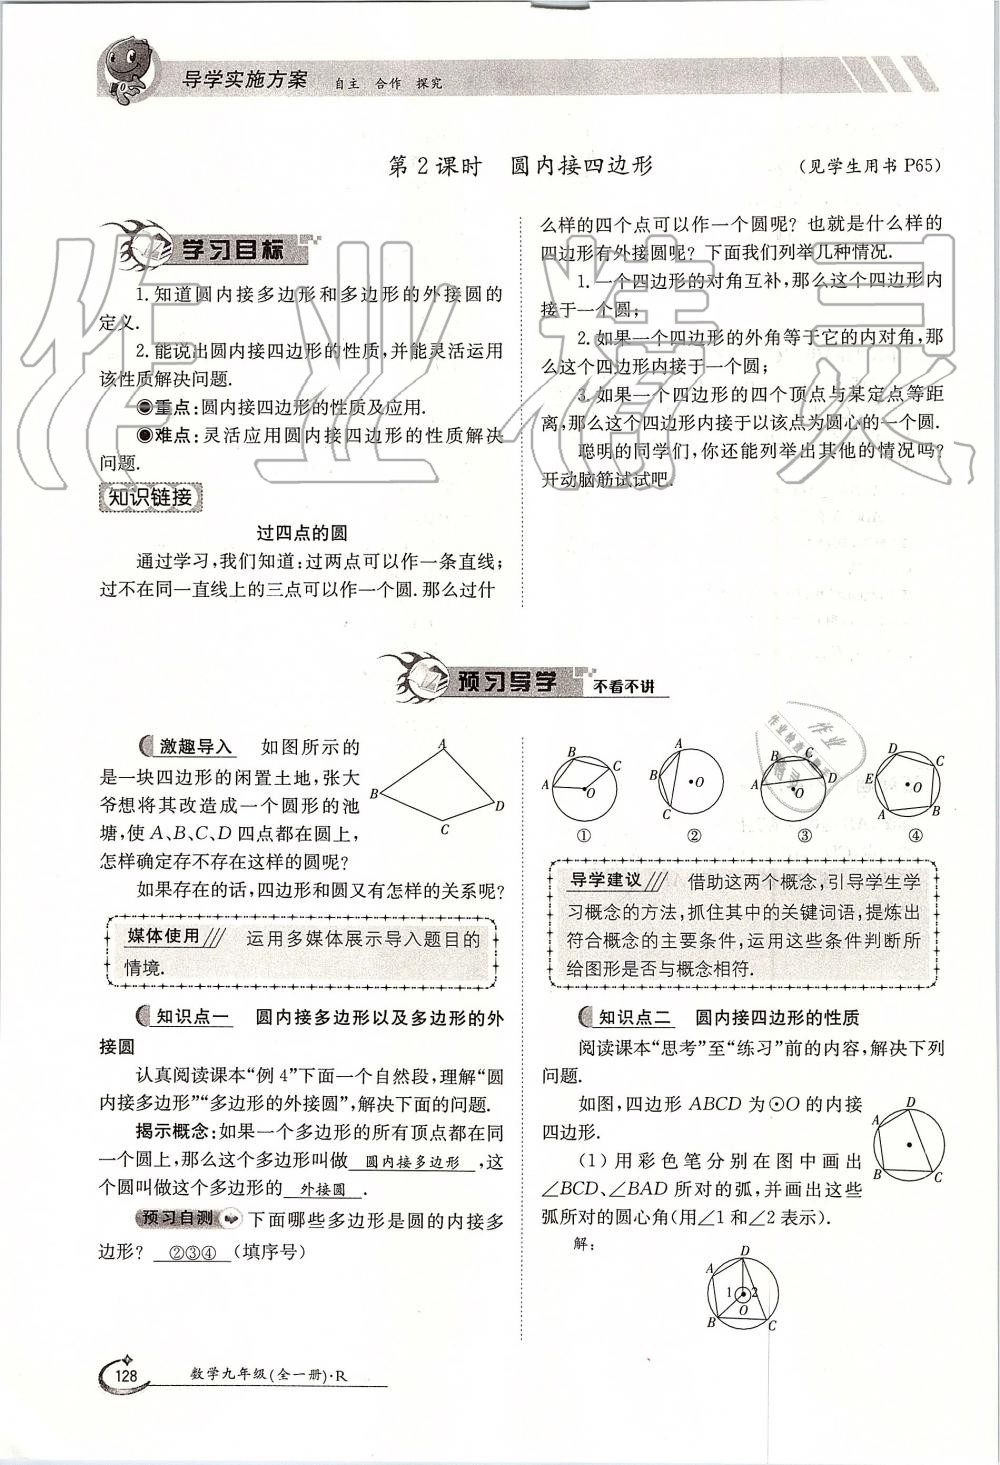 导学实施方案 自主 合作 探究
第2课时 圆内接四边形 (见学生用书 P65)
学习目标
1.知道圆内接多边形和多边形的外接圆的
定义.
2.能说出圆内接四边形的性质,并能灵活运用
该性质解决问题.
重点:圆内接四边形的性质及应用.
难点:灵活应用圆内接四边形的性质解决
问题.
知识链接
过四点的圆
通过学习,我们知道:过两点可以作一条直线;
过不在同一直线上的三点可以作一个圆.那么过什
么样的四个点可以作一个圆呢? 也就是什么样的
四边形有外接圆呢? 下面我们列举几种情况.
1.一个四边形的对角互补,那么这个四边形内
接于一个圆;
2.如果一个四边形的外角等于它的内对角,那
么这个四边形内接于一个圆;
3.如果一个四边形的四个顶点与某定点等距
离,那么这个四边形内接于以该点为圆心的一个圆.
聪明的同学们,你还能列举出其他的情况吗?
开动脑筋试试吧.
作业精灵
预习导学 不看不讲
激趣导入 如图所示的
是一块四边形的闲置土地,张大
爷想将其改造成一个圆形的池
塘,使 A、B、C、D 四点都在圆上,
怎样确定存不存在这样的圆呢?
A
B
D
C
如果存在的话,四边形和圆又有怎样的关系呢?
媒体使用 运用多媒体展示导入题目的
情境.
知识点一 圆内接多边形以及多边形的外
接圆
认真阅读课本“例 4”下面一个自然段,理解“圆
内接多边形”“多边形的外接圆”,解决下面的问题.
揭示概念:如果一个多边形的所有顶点都在同
一个圆上,那么这个多边形叫做 圆内接多边形 ,这
个圆叫做这个多边形的 外接圆 .
预习自测 下面哪些多边形是圆的内接多
边形? ②③④ (填序号)
A B C O
A B C O
A B C D O
A B C D E
① ② ③ ④
导学建议 借助这两个概念,引导学生学
习概念的方法,抓住其中的关键词语,提炼出
符合概念的主要条件,运用这些条件判断所
给图形是否与概念相符.
知识点二 圆内接四边形的性质
阅读课本“思考”至“练习”前的内容,解决下列
问题.
如图,四边形 ABCD 为⊙O 的内接
四边形.
(1)用彩色笔分别在图中画出
∠BCD、∠BAD 所对的弧,并画出这些
弧所对的圆心角(用∠1和∠2表示).
A D B C
解:
A D 1 2 O B C
128 数学九年级(全一册)·R